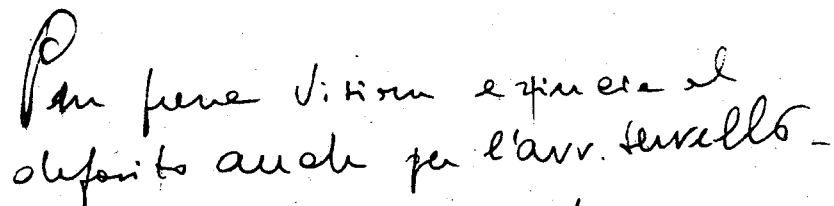 Per presa visione e rinuncia al
deposito anche per l'avv. Servello -